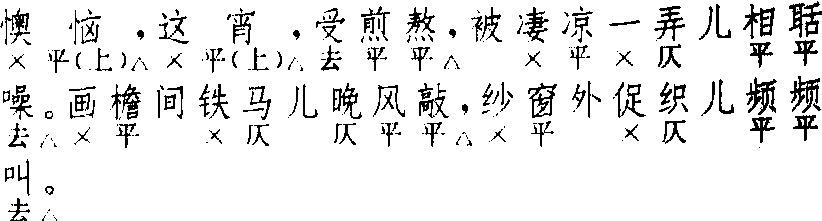 懊恼，这宵，受煎熬，被凄凉一弄儿相聒
× 平(上)△ × 平(上)△ 去 平 平 △ × 平 × 仄 平 平
噪。画檐间铁马儿晚风敲，纱窗外促织儿频频
去△ × 平 × 仄 仄 平 平 △ × 平 × 仄 平 平
叫。
去△